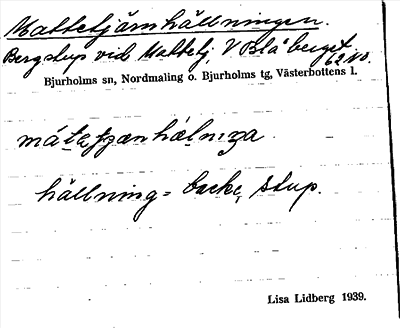 Mattetjärnhällningen.
Bergstup vid Mattetj. V Blåberget
62 No.
Bjurholms sn, Nordmaling o. Bjurholms tg, Västerbottens l.
hällning = backe, stup.
Lisa Lidberg 1939.